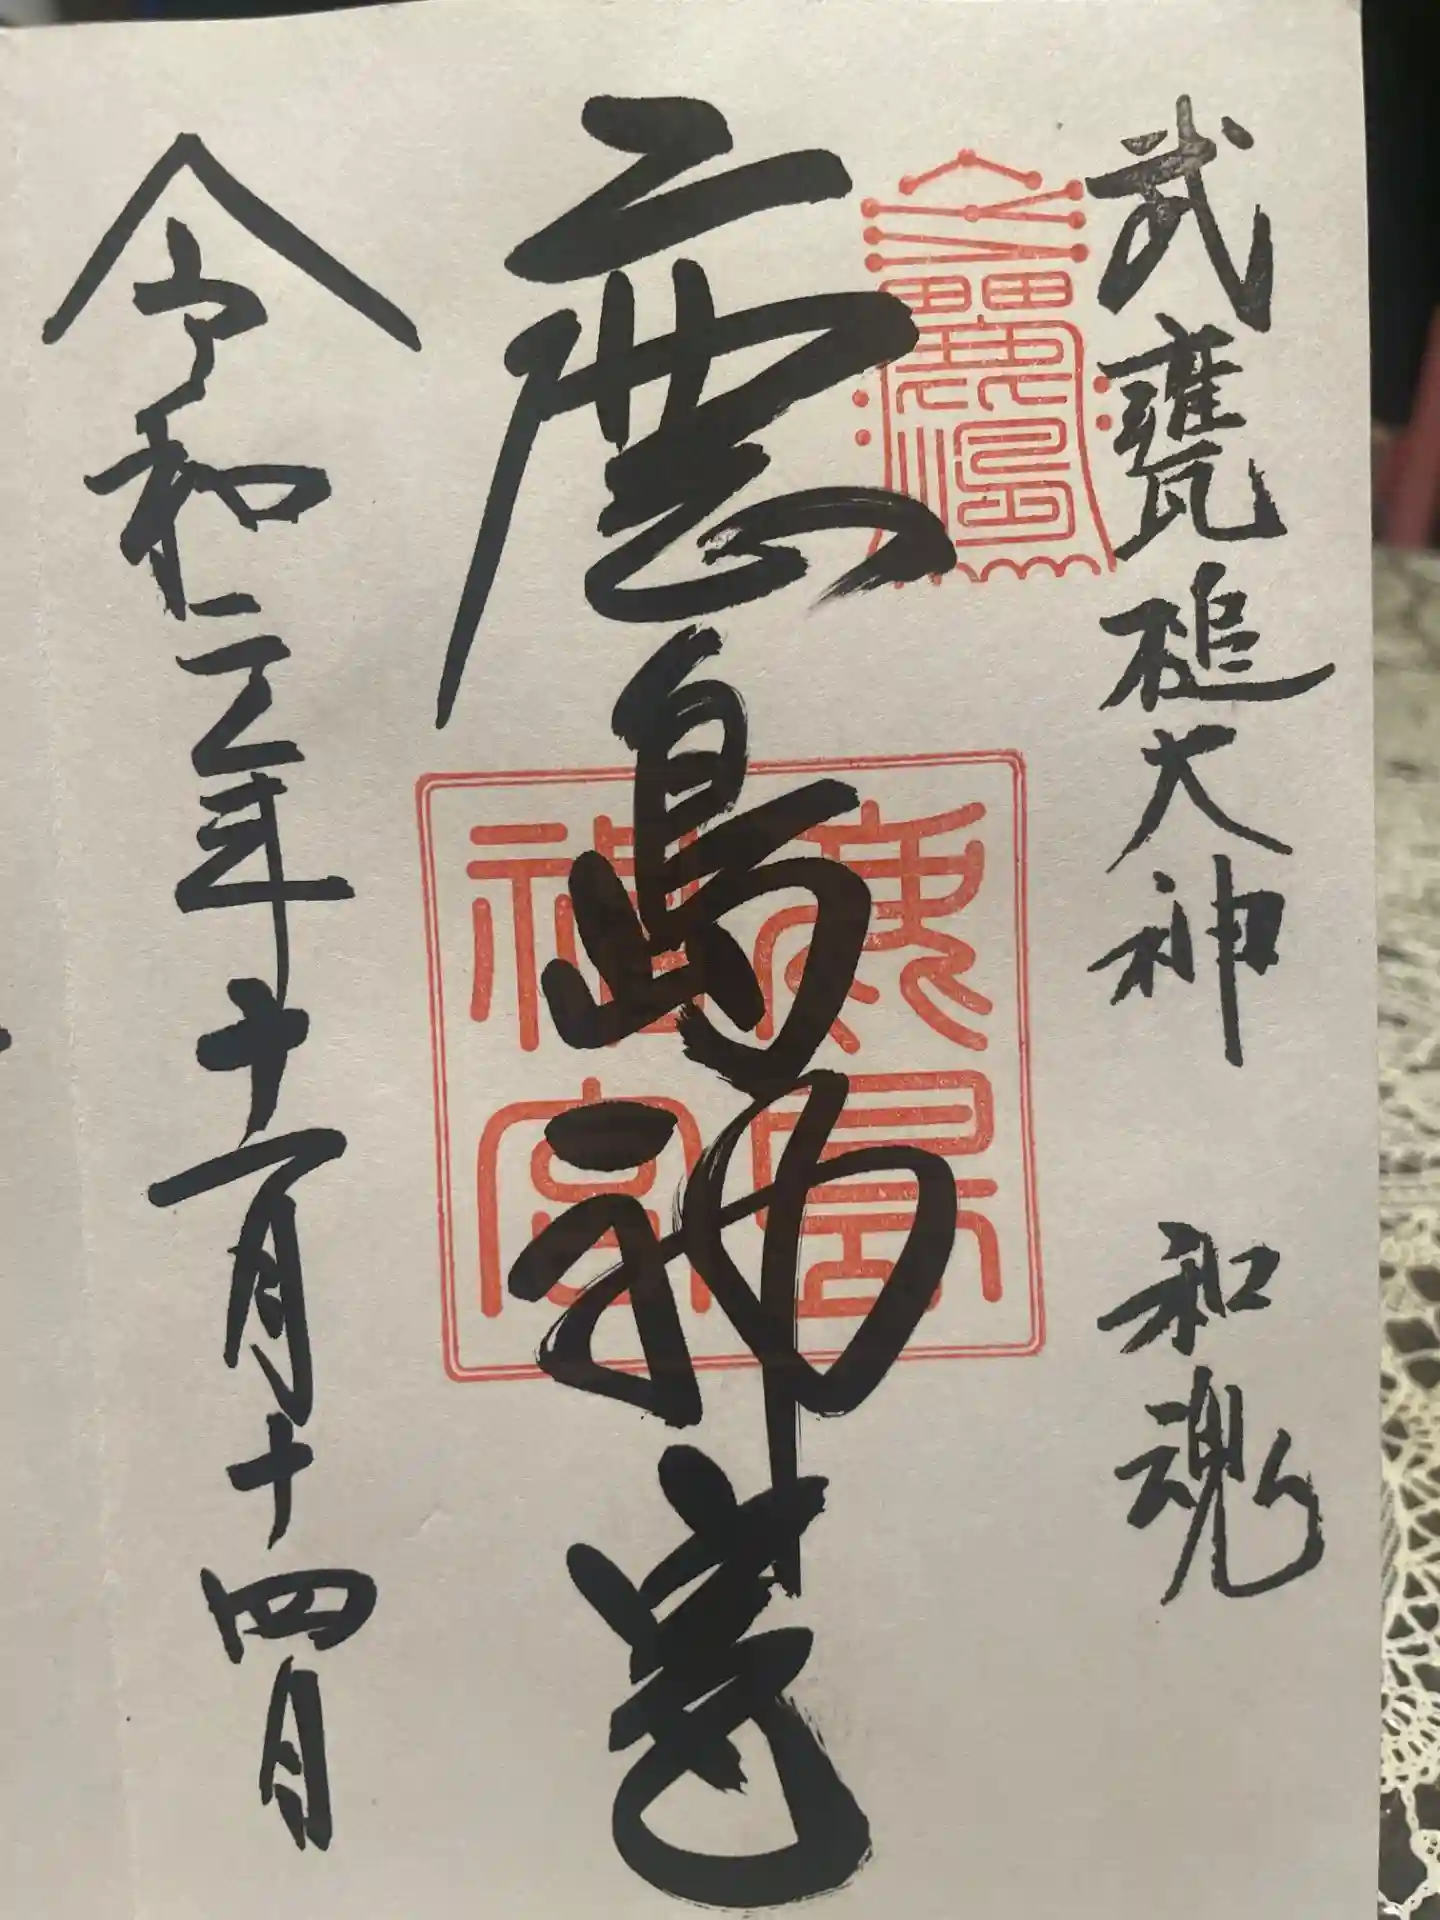 武甕槌大神 和魂
鹿島神宮
鹿島神宮
令和三年十一月十四日